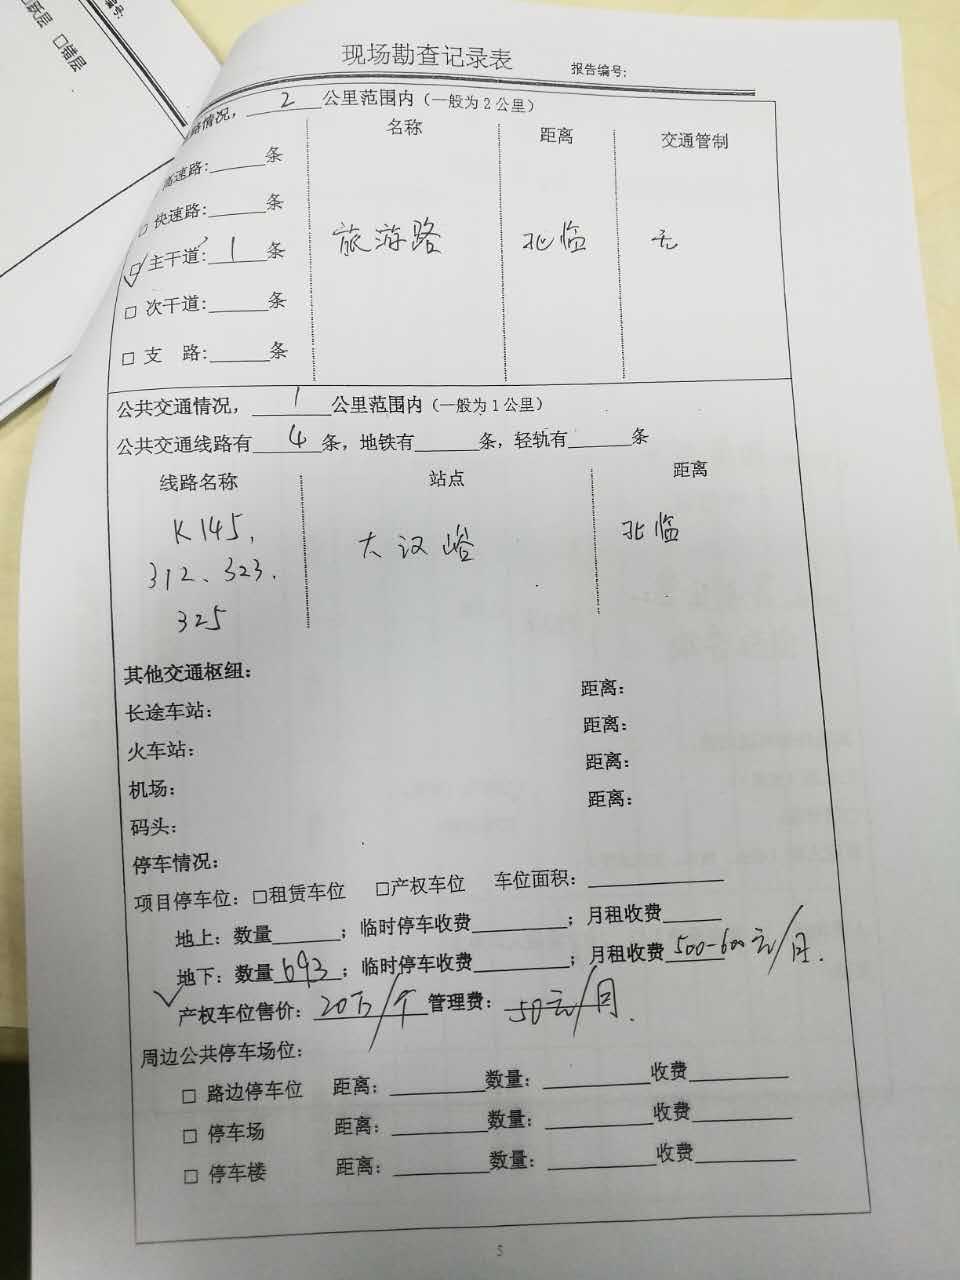 编号:
跃层 □错层
现场勘查记录表 报告编号:
路情况, 2 公里范围内 (一般为2公里)
名称 距离 交通管制
高速路:____条
□ 快速路:____条
☑ 主干道: 1 条 旅游路 北临 无
□ 次干道:____条
□ 支 路:____条
公共交通情况, 1 公里范围内 (一般为1公里)
公共交通线路有 4 条, 地铁有____条, 轻轨有____条
线路名称 站点 距离
K145, 大汉峪 北临
312、323、
325
其他交通枢纽:
长途车站: 距离:
火车站: 距离:
机场: 距离:
码头: 距离:
停车情况:
项目停车位: □租赁车位 □产权车位 车位面积:
地上: 数量____; 临时停车收费____; 月租收费____
地下: 数量 693; 临时停车收费____; 月租收费 500-600元/月.
✓ 产权车位售价: 20万/个 管理费: 50元/月.
周边公共停车场位:
□ 路边停车位 距离:____数量:____收费____
□ 停车场 距离:____数量:____收费____
□ 停车楼 距离:____数量:____收费____
5